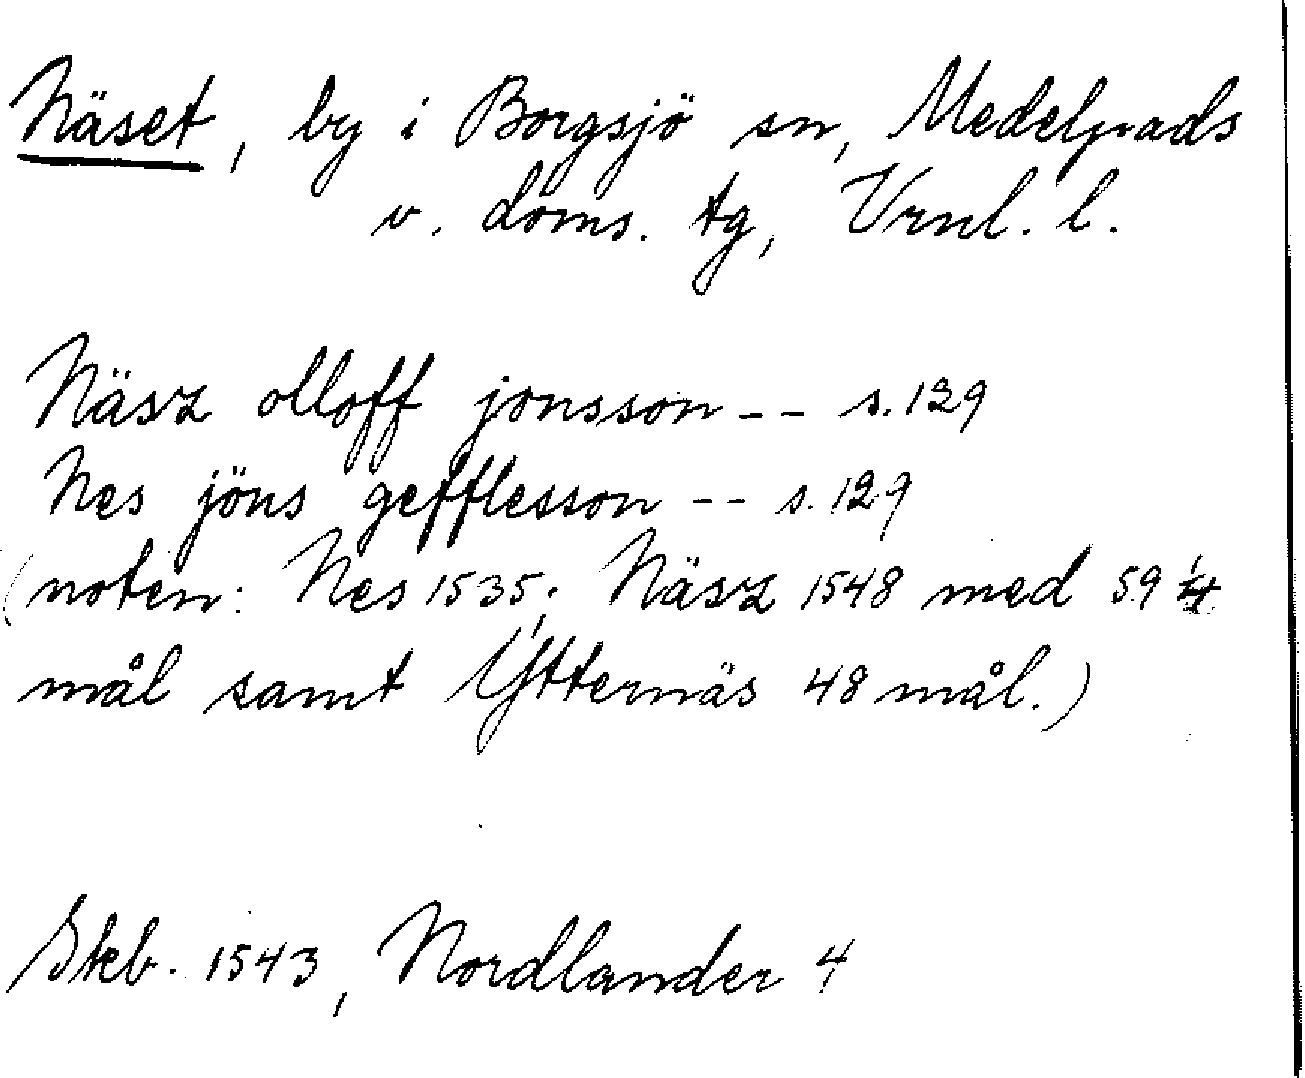 Näset, by i Borgsjö sn, Medelpads
v. doms. tg, Vrnl. l.
Näsz olloff jonsson -- s. 129
Nes jöns gefflesson -- s. 129
(noten: Nes 1535; Näsz 1548 med 59 1/4
mål samt Ytternäs 48 mål.)
Skb. 1543, Nordlander 4